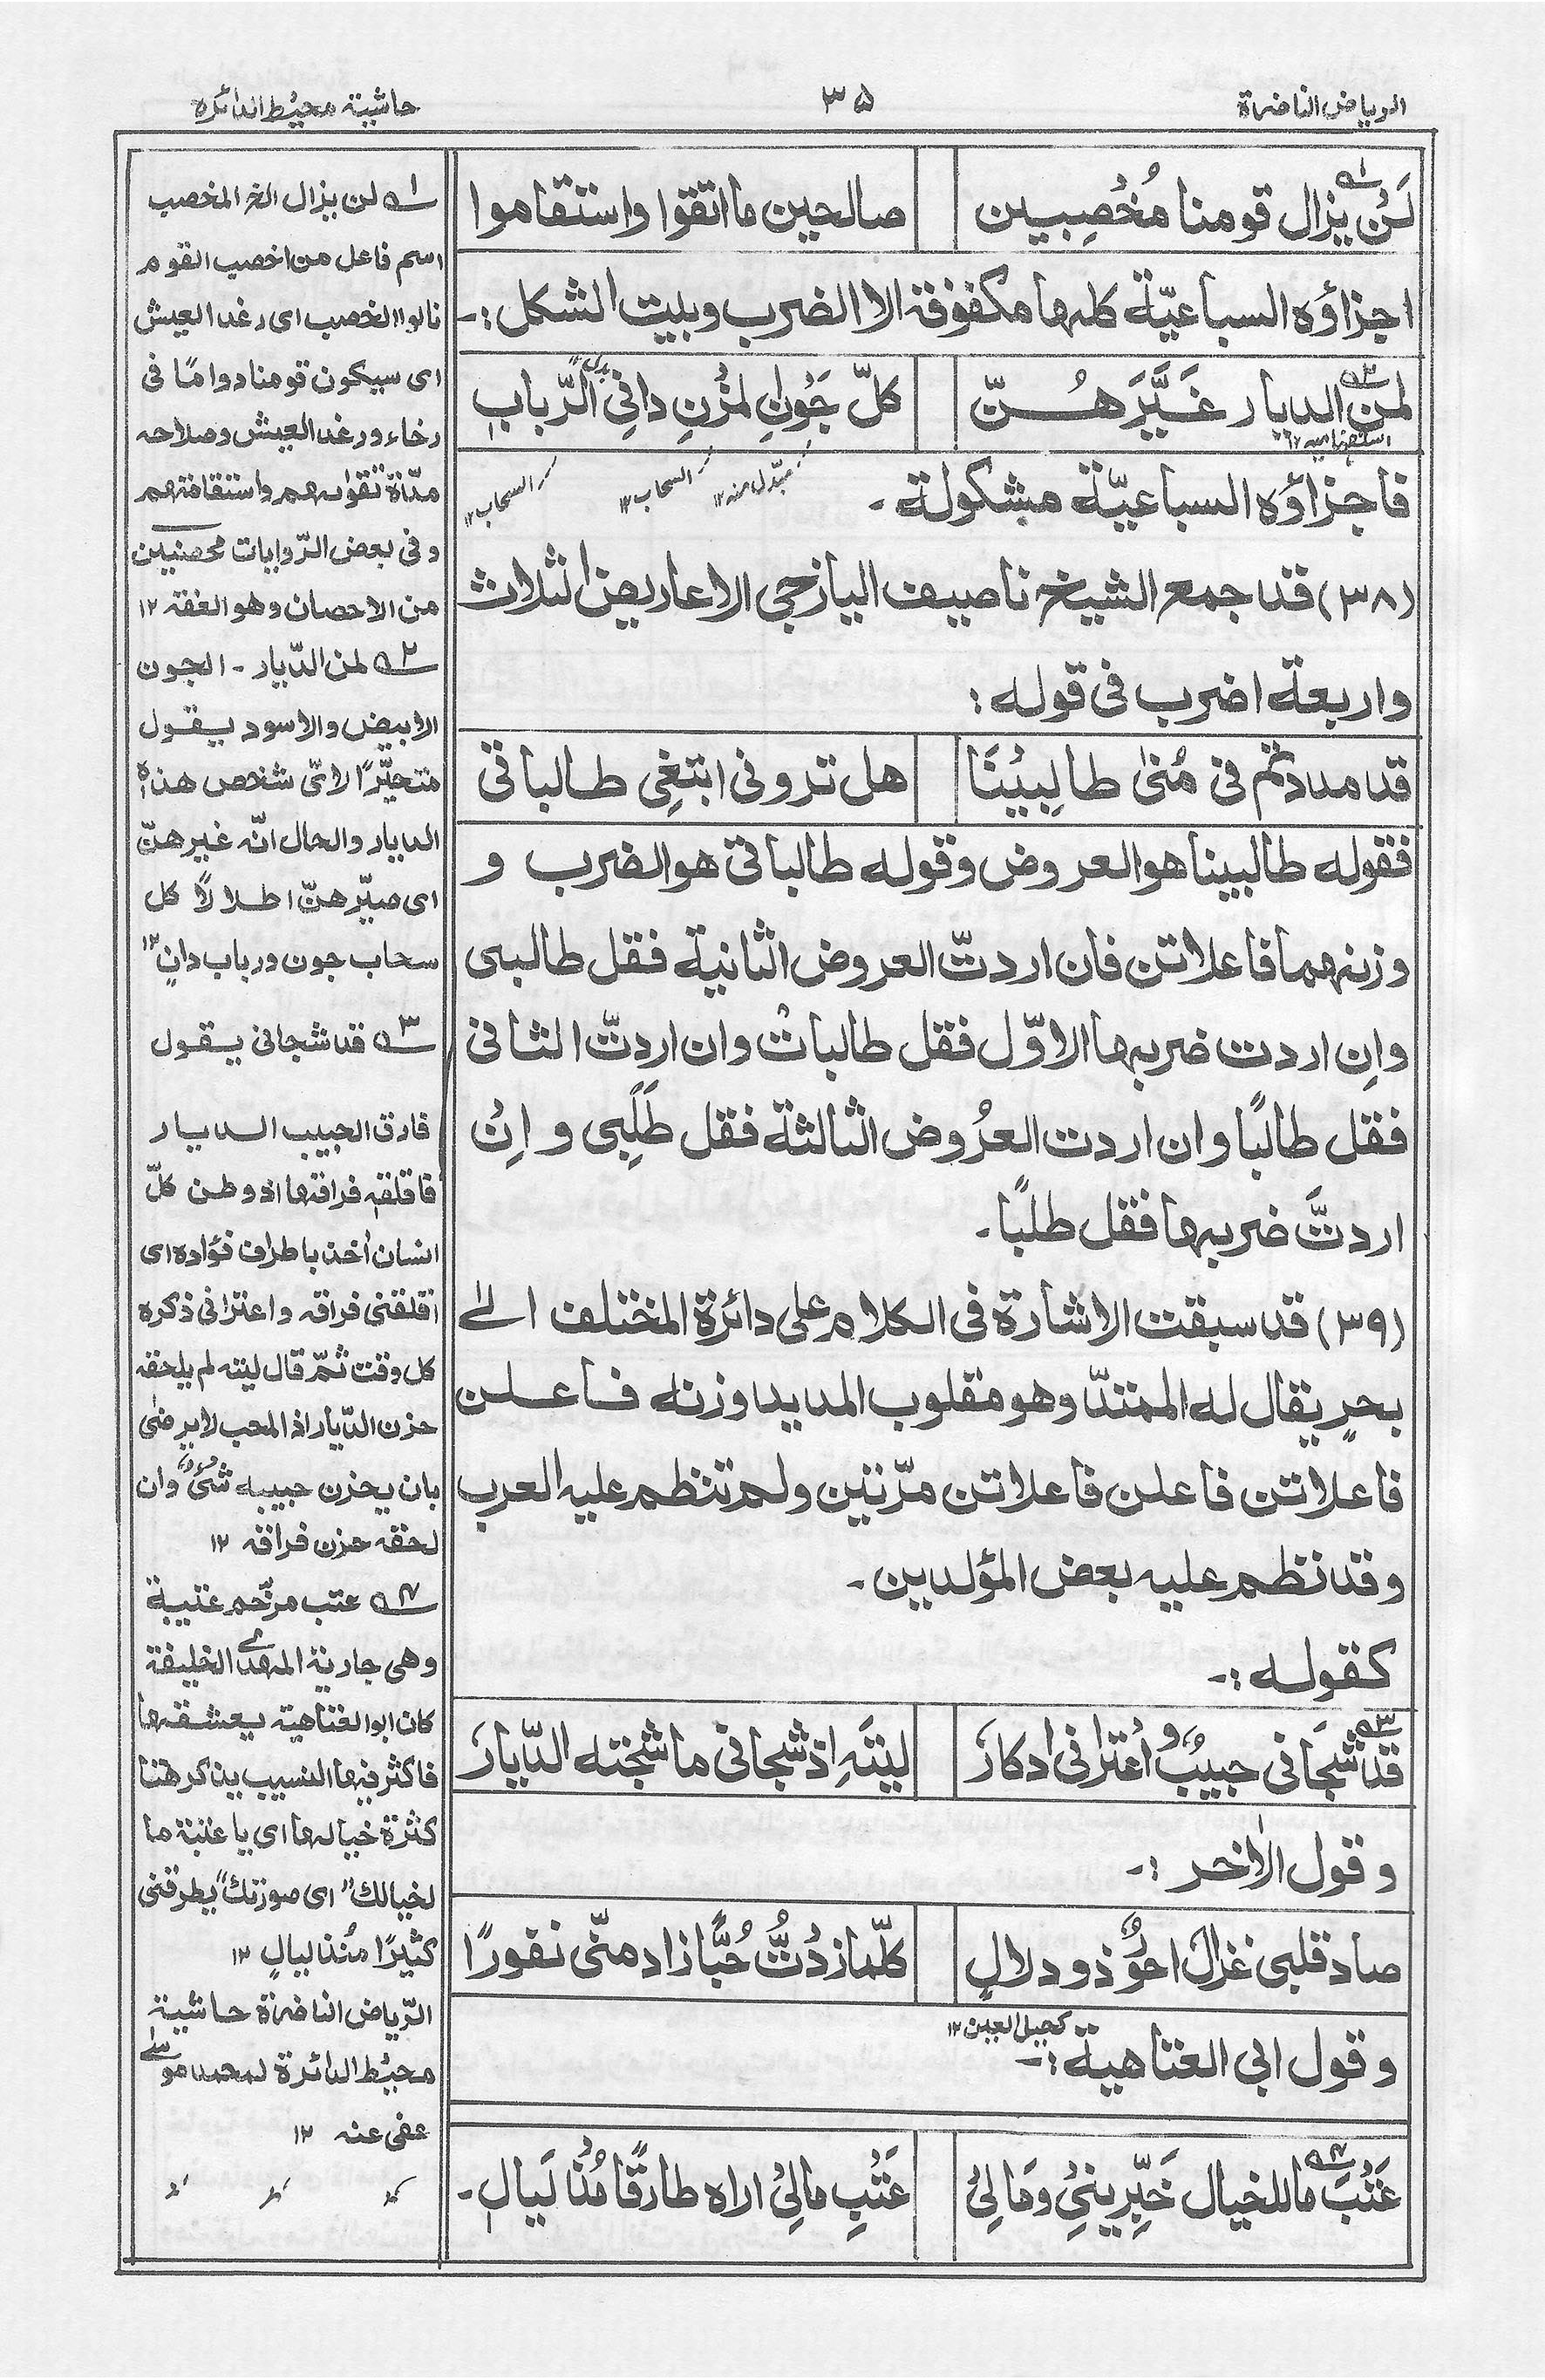 الرياض الناضرة
٣۵
حاشية محيط الدائره
لَنْ يزال قومنا مُخْصِبين
صالحين ما اتقوا واستقاموا
اجزاؤه السباعيّة كلها مكفوفة الا الضرب وبيت الشكل :-
لمن الديار غَيَّرَهُنّ
كلّ جَوْنِ المُزْنِ دانِي الرّبابِ
بدل
مبّدل منه ١٢
السحاب ١٢
السحاب ١٢
فاجزاؤه السباعيّة مشكولة -
(٣٨) قد جمع الشيخ ناصيف اليازجي الاعاريض الثلاث
واربعة اضرب فى قوله :
قد مددتم فى مُنىٰ طالِبِيْنَا
هل تدونى ابتغِى طالباتى
فقوله طالبينا هو العروض وقوله طالباتى هو الضرب و
وزنهما فاعلاتن فان اردتّ العروض الثانية فقل طالبى
وان اردت ضربها الاوّل فقل طالباتْ وان اردتّ الثانى
فقل طالبًا وان اردت العرُوض الثالثة فقل طَلَبِى و اِنْ
اردتَّ ضربها فقل طلبًا-
(٣٩) قد سبقت الاشارة فى الكلام على دائرة المختلف الىٰ
بحرٍ يقال له الممتدّ وهو مقلوب المديد وزنه فاعلن
فاعلاتن فاعلن فاعلاتن مرّتين ولم تنظم عليه العرب
وقد نظم عليه بعض المؤلدين -
كقوله :-
قد شجَانى حبيبٌ وُ اعترانى ادكارَ
ليتَهِ اذ شجانى ما شجته الدّيارَ
وقول الاٰخر :-
صاد قلبى غزالٌ احوٌ ذو دلالٍ
كلّما زدْتُّ حُبًّا زاد منّى نفورًا
وقول ابى العتاهية :-
كحيل العين ١٢
عَتْبَ ماللخيال خَبِّرِينِيْ وَمَالِيْ
عَتْبِ مالِيْ اراه طارقًا مُنْذ لَيالِ-
١ لن يزال الخ المخصب
اسم فاعل من اخصب القوم
نالوا الخصب اى رغد العيش
اى سيكون قومنا دوامًا فى
رخاء ورغد العيش وصلاحه
مدّة تقواهم واستقامتهم
وفى بعض الرّوايات محصنين
من الاحصان وهو العفة ١٢
٢ لمن الدّيار - الجون
الابيض والاسود يقول
متحيّرًا لاىّ شخص هذه
الديار والحال انّه غيرهنّ
اى صيّرهنّ اطلالًا كل
سحاب جون ورباب دانٍ ١٢
٣ قد شجانى يقول
فارق الحبيب الديار
فاقلقه فراقها اذ وطن كلّ
انسان اٰخذ باطراف فؤاده اى
اقلقنى فراقه واعترانى ذكره
كل وقت ثمّ قال ليته لم يلحقه
حزن الدّيار اذ المحب لا يرضىٰ
بان يحزن حبيبه شئٌ وان
لحقه حزن فراقه ١٢
٤ عتب مرخّم عتيبة
وهى جارية المهدى الخليفة
كان ابو العتاهية يعشقها
فاكثر فيها النسيب يذكر هٰهنا
كثرة خيالها اى يا عتبة ما
لخيالك" اى صورتك" يطرقنى
كثيرًا مُنْذ ليالٍ ١٢
الرّياض الناضرة حاشية
محيْط الدائرة لمحمد موسىٰ
عفى عنه ١٢